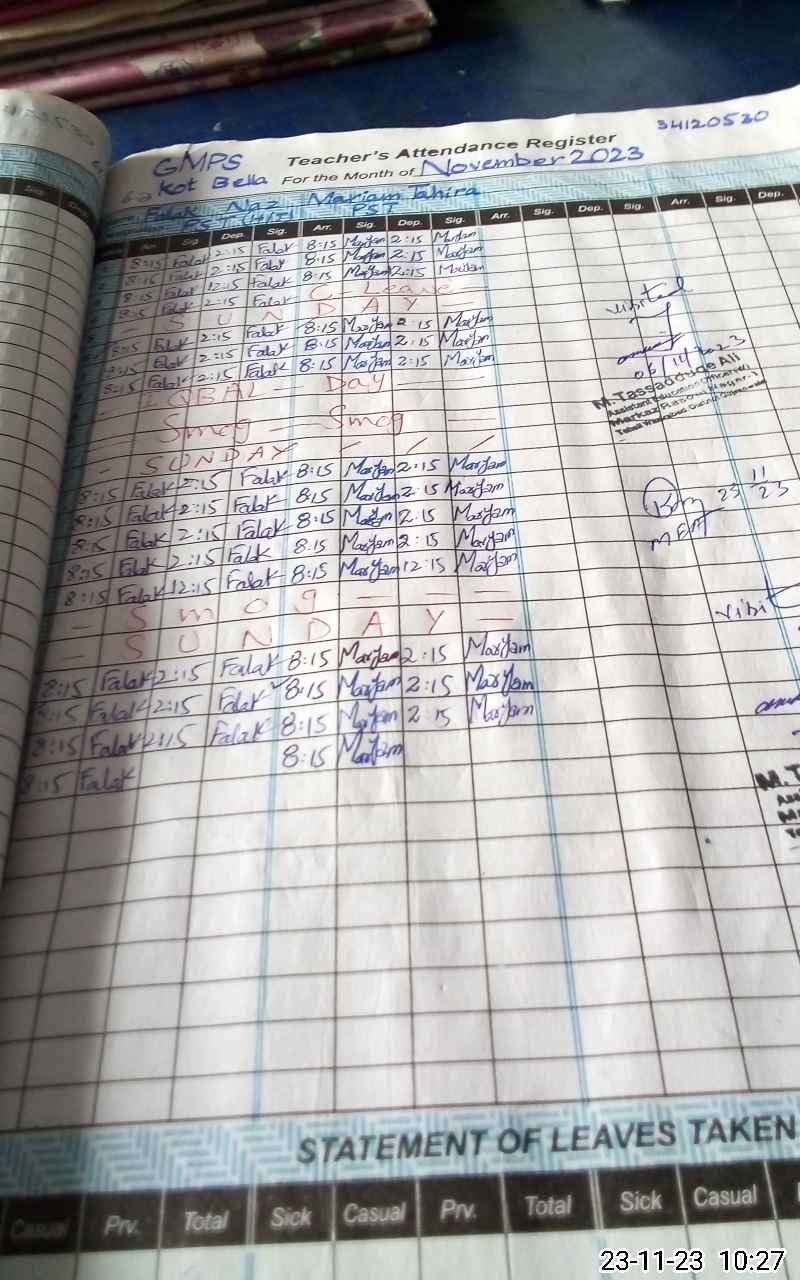 34120530
GMPS Teacher's Attendance Register
Kot Bella For the Month of November 2023
Falak Naz Mariam Tahira
PST
Sig. Dep. Sig. Arr. Sig. Dep. Sig. Arr. Sig. Dep. Sig. Arr. Sig. Dep.
8:15 Falak 2:15 Falak 8:15 Maryam 2:15 Maryam
8:15 Falak 2:15 Falak 8:15 Maryam 2:15 Maryam
8:15 Falak 12:15 Falak 8:15 Maryam 12:15 Maryam
8:15 Falak 2:15 Falak C - Leave
S U N D A Y —
8:15 Falak 2:15 Falak 8:15 Maryam 2:15 Maryam
8:15 Falak 2:15 Falak 8:15 Maryam 2:15 Maryam
8:15 Falak 2:15 Falak 8:15 Maryam 2:15 Maryam
IQBAL - Day — —
— Smog — Smog —
- SUNDAY
8:15 Falak 2:15 Falak 8:15 Maryam 2:15 Maryam
8:15 Falak 2:15 Falak 8:15 Maryam 2:15 Maryam
8:15 Falak 2:15 Falak 8:15 Maryam 2:15 Maryam
8:15 Falak 2:15 Falak 8:15 Maryam 2:15 Maryam
8:15 Falak 12:15 Falak 8:15 Maryam 12:15 Maryam
- S m o g — — —
- S U N D A Y —
8:15 Falak 2:15 Falak 8:15 Maryam 2:15 Maryam
8:15 Falak 2:15 Falak 8:15 Maryam 2:15 Maryam
8:15 Falak 2:15 Falak 8:15 Maryam 2:15 Maryam
8:15 Falak 8:15 Maryam
visited
M. Tassadduq Ali
Assistant Education Officer
Markaz
23 11
23
visit
M.T
STATEMENT OF LEAVES TAKEN
Casual Prv. Total Sick Casual Prv. Total Sick Casual
23-11-23 10:27